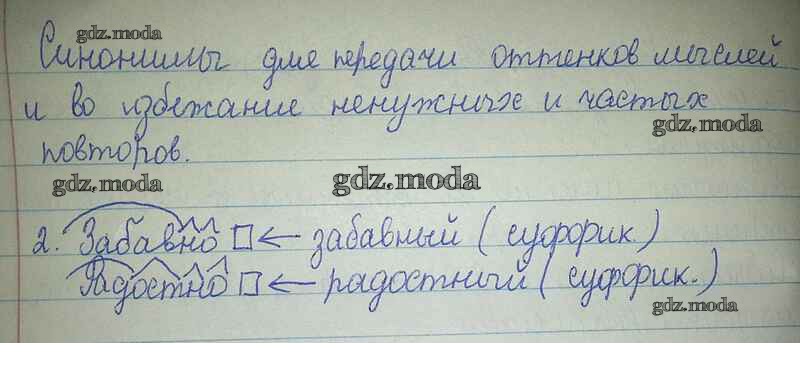 gdz.moda
Синонимы для передачи оттенков мыслей
и во избежание ненужных и частых
gdz.moda
повторов.
gdz.moda
gdz.moda
2. Забавно □ ← забавный (суффик.)
Радостно □ ← радостный (суффик.)
gdz.moda